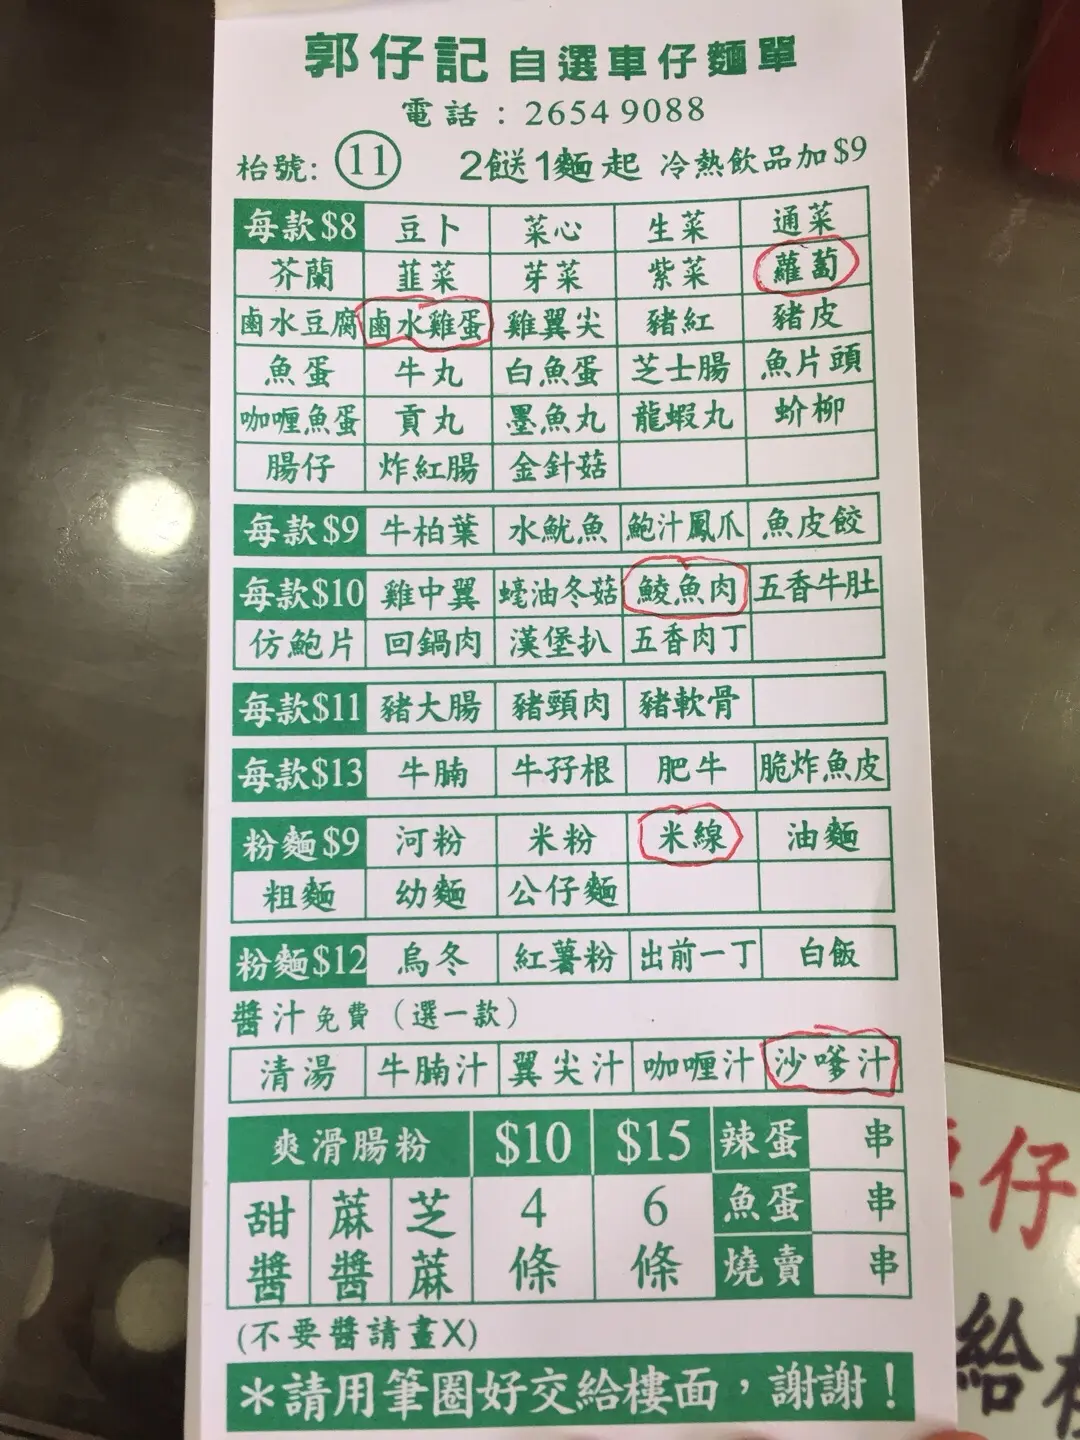 郭仔記 自選車仔麵單
電話：2654 9088
枱號: 11 2餸1麵起 冷熱飲品加$9
每款$8 豆卜 菜心 生菜 通菜
芥蘭 韮菜 芽菜 紫菜 蘿蔔
鹵水豆腐 鹵水雞蛋 雞翼尖 豬紅 豬皮
魚蛋 牛丸 白魚蛋 芝士腸 魚片頭
咖喱魚蛋 貢丸 墨魚丸 龍蝦丸 蚧柳
腸仔 炸紅腸 金針菇
每款$9 牛柏葉 水魷魚 鮑汁鳳爪 魚皮餃
每款$10 雞中翼 蠔油冬菇 鯪魚肉 五香牛肚
仿鮑片 回鍋肉 漢堡扒 五香肉丁
每款$11 豬大腸 豬頸肉 豬軟骨
每款$13 牛腩 牛孖根 肥牛 脆炸魚皮
粉麵$9 河粉 米粉 米線 油麵
粗麵 幼麵 公仔麵
粉麵$12 烏冬 紅薯粉 出前一丁 白飯
醬汁免費（選一款）
清湯 牛腩汁 翼尖汁 咖喱汁 沙嗲汁
爽滑腸粉 $10 $15 辣蛋 串
甜醬 蔴醬 芝蔴 4條 6條 魚蛋 串
燒賣 串
(不要醬請畫X)
＊請用筆圈好交給樓面，謝謝！
仔
給